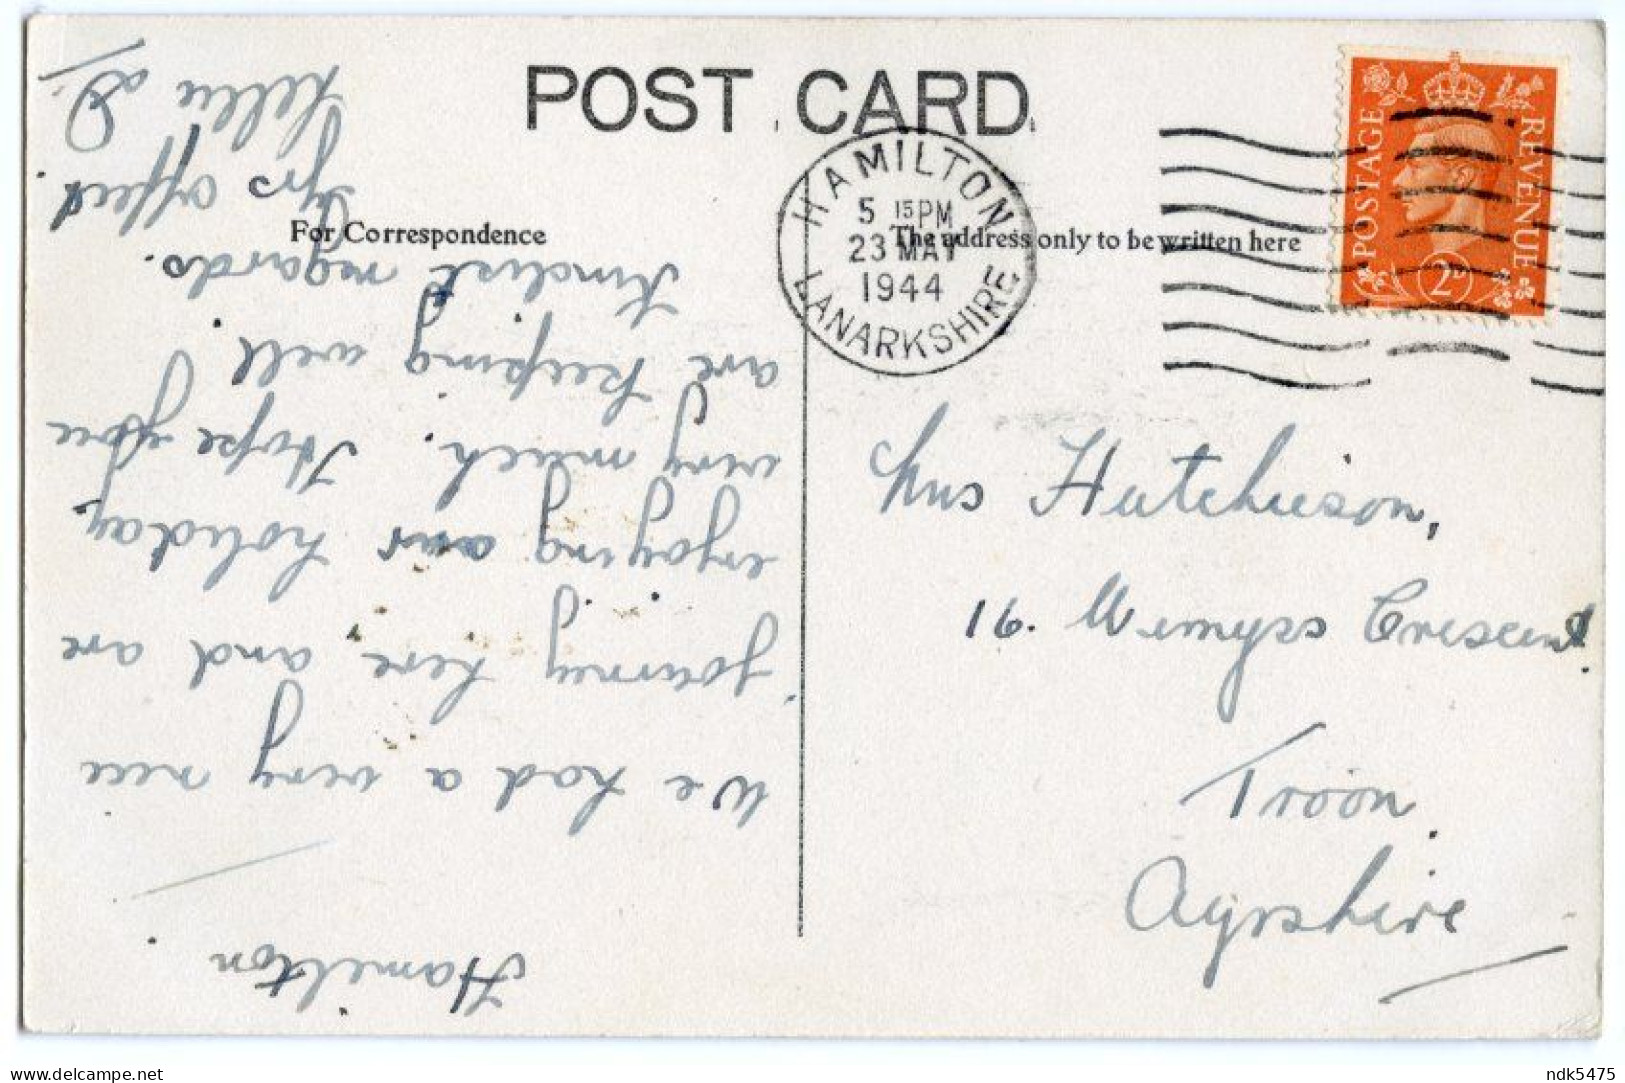 POST CARD
For Correspondence
The address only to be written here
HAMILTON
5 15PM
23 MAY
1944
LANARKSHIRE
POSTAGE
REVENUE
2D
Mrs Hutchieson,
16. Wemyss Crescent
Troon.
Ayrshire
Hamilton
We had a very nice
journey here, and are
enjoying our holiday
very much. Hope you
are keeping well.
Kindest regards.
Yrs affect
Nellie D.
www.delcampe.net
ndk5475